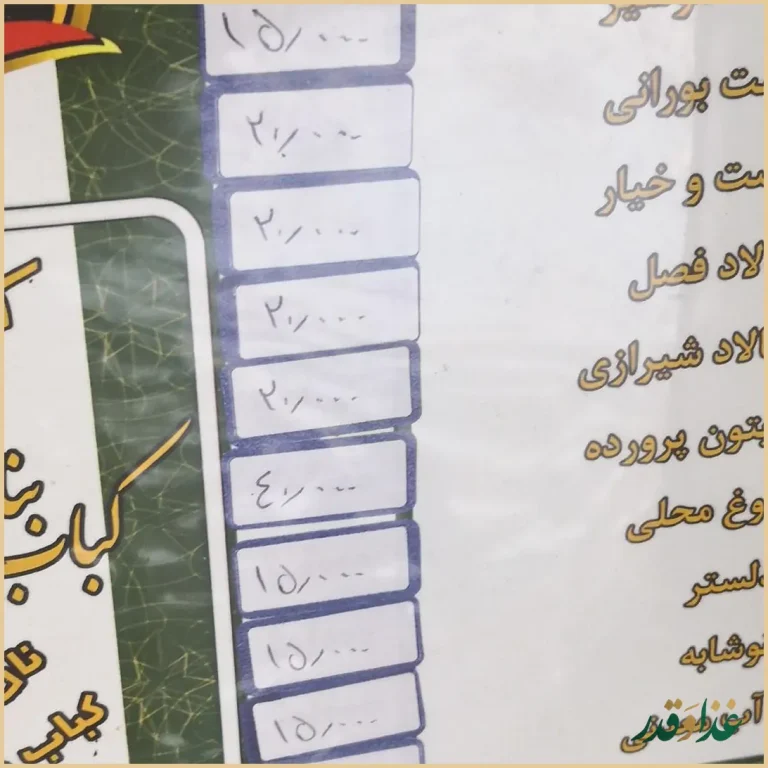 ۱۵/۰۰۰
ت بورانی
۲۰/۰۰۰
ست و خیار
۲۰/۰۰۰
لاد فصل
۲۰/۰۰۰
الاد شیرازی
۲۰/۰۰۰
یتون پرورده
۴۰/۰۰۰
وغ محلی
۱۵/۰۰۰
لستر
۱۵/۰۰۰
نوشابه
۱۵/۰۰۰
کباب
کباب
غذا و قدر